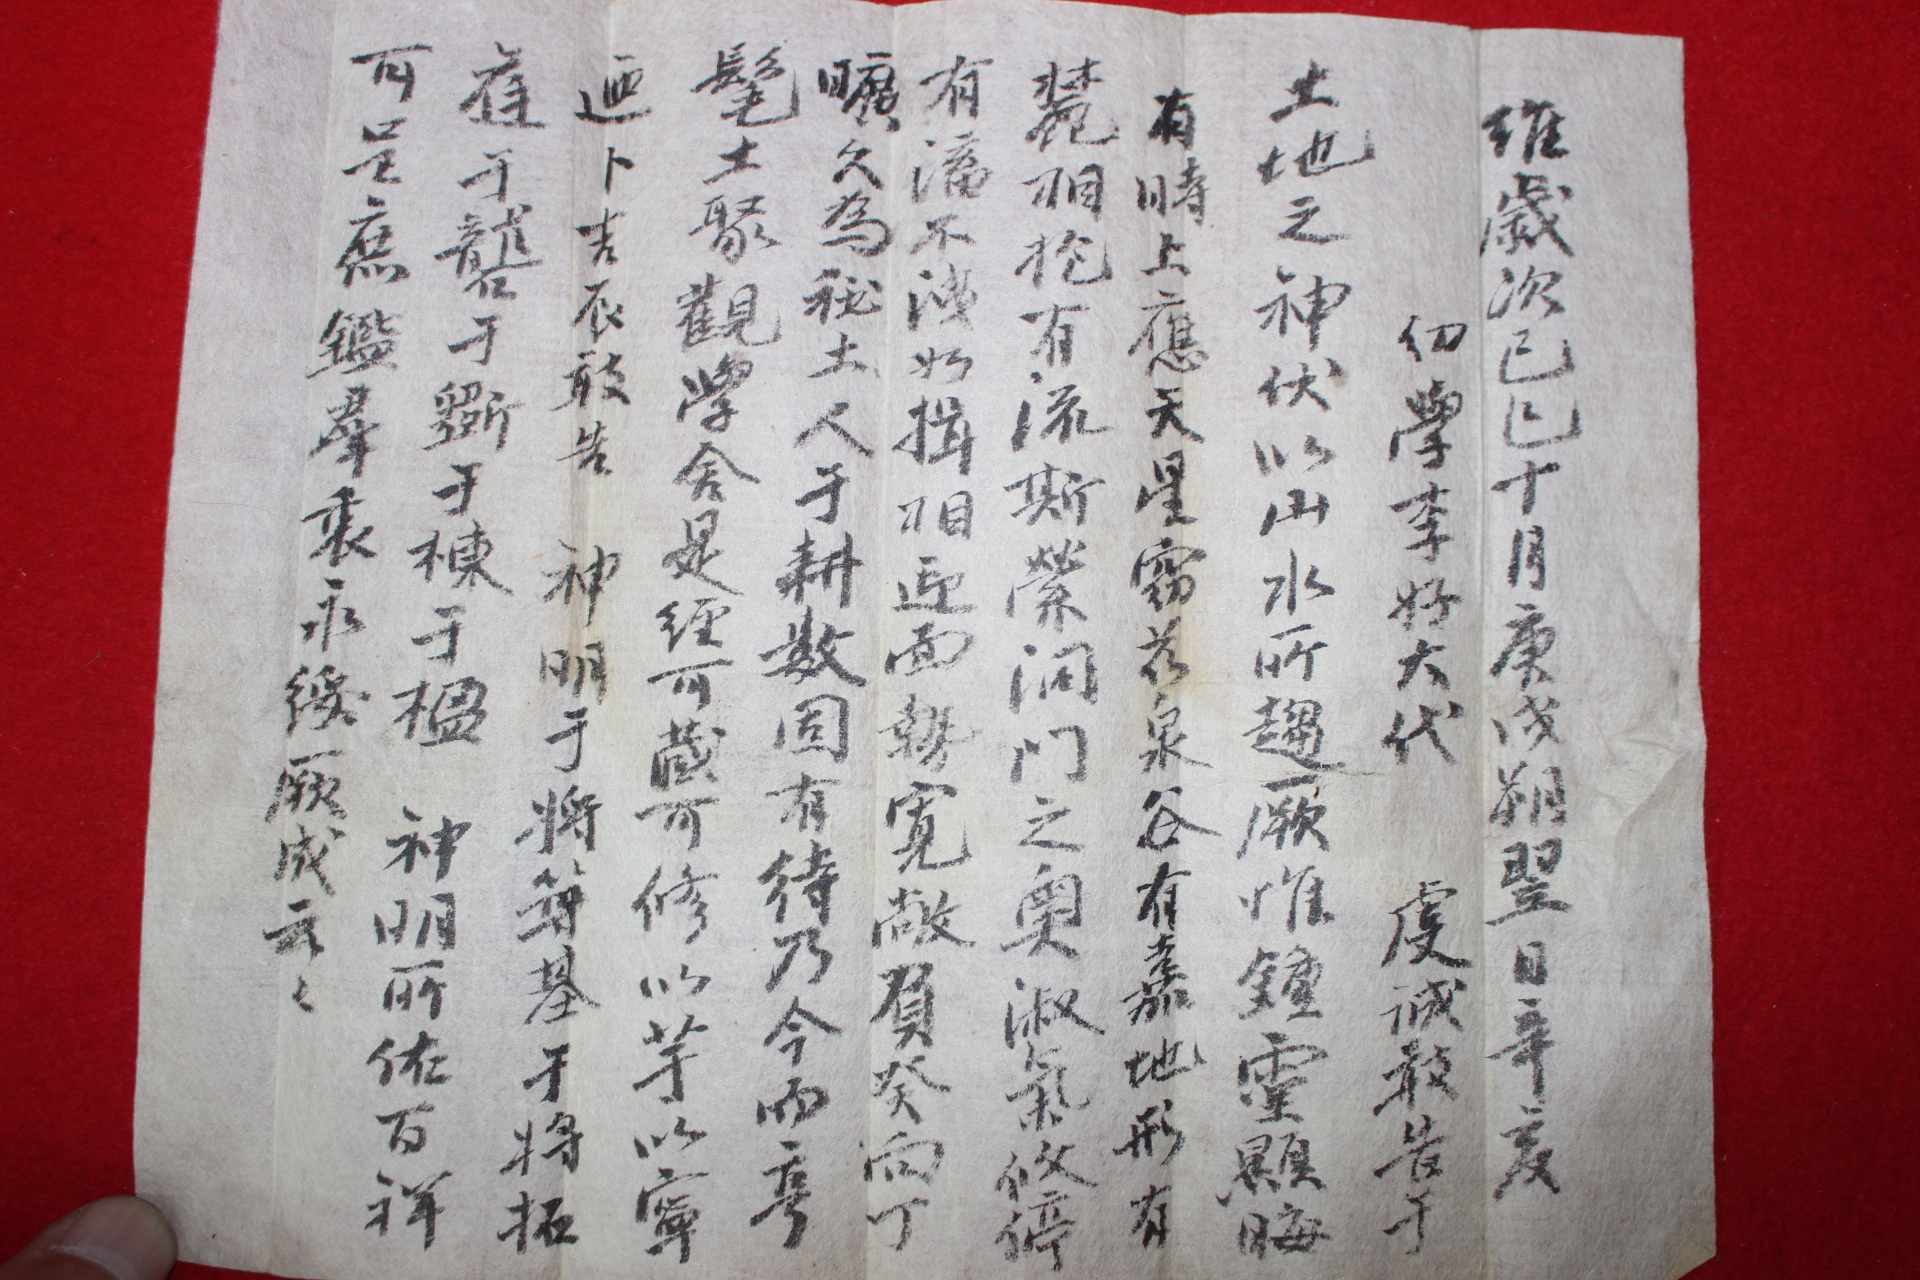 維歲次己巳十月庚戌朔翌日辛亥
幼學李好大代 虔誠敢告于
土地之神伏以山水所趨厥惟鍾靈顯晦
有時上應天星霧茲泉谷有嘉地形有
麓相抱有流斯縈洞門之奧淑氣攸停
有瀦不淺如揖相迎面勢寬敞負癸向丁
曠久為秘土人于耕數固有待乃今而亨
髦士聚觀學舍是經可藏可修以芋以寧
迺卜吉辰敢告 神明于將等基于將拓
薙于礱于斲于棟于楹 神明所佐百祥
可是庶鑑羣衷永綏厥成云云